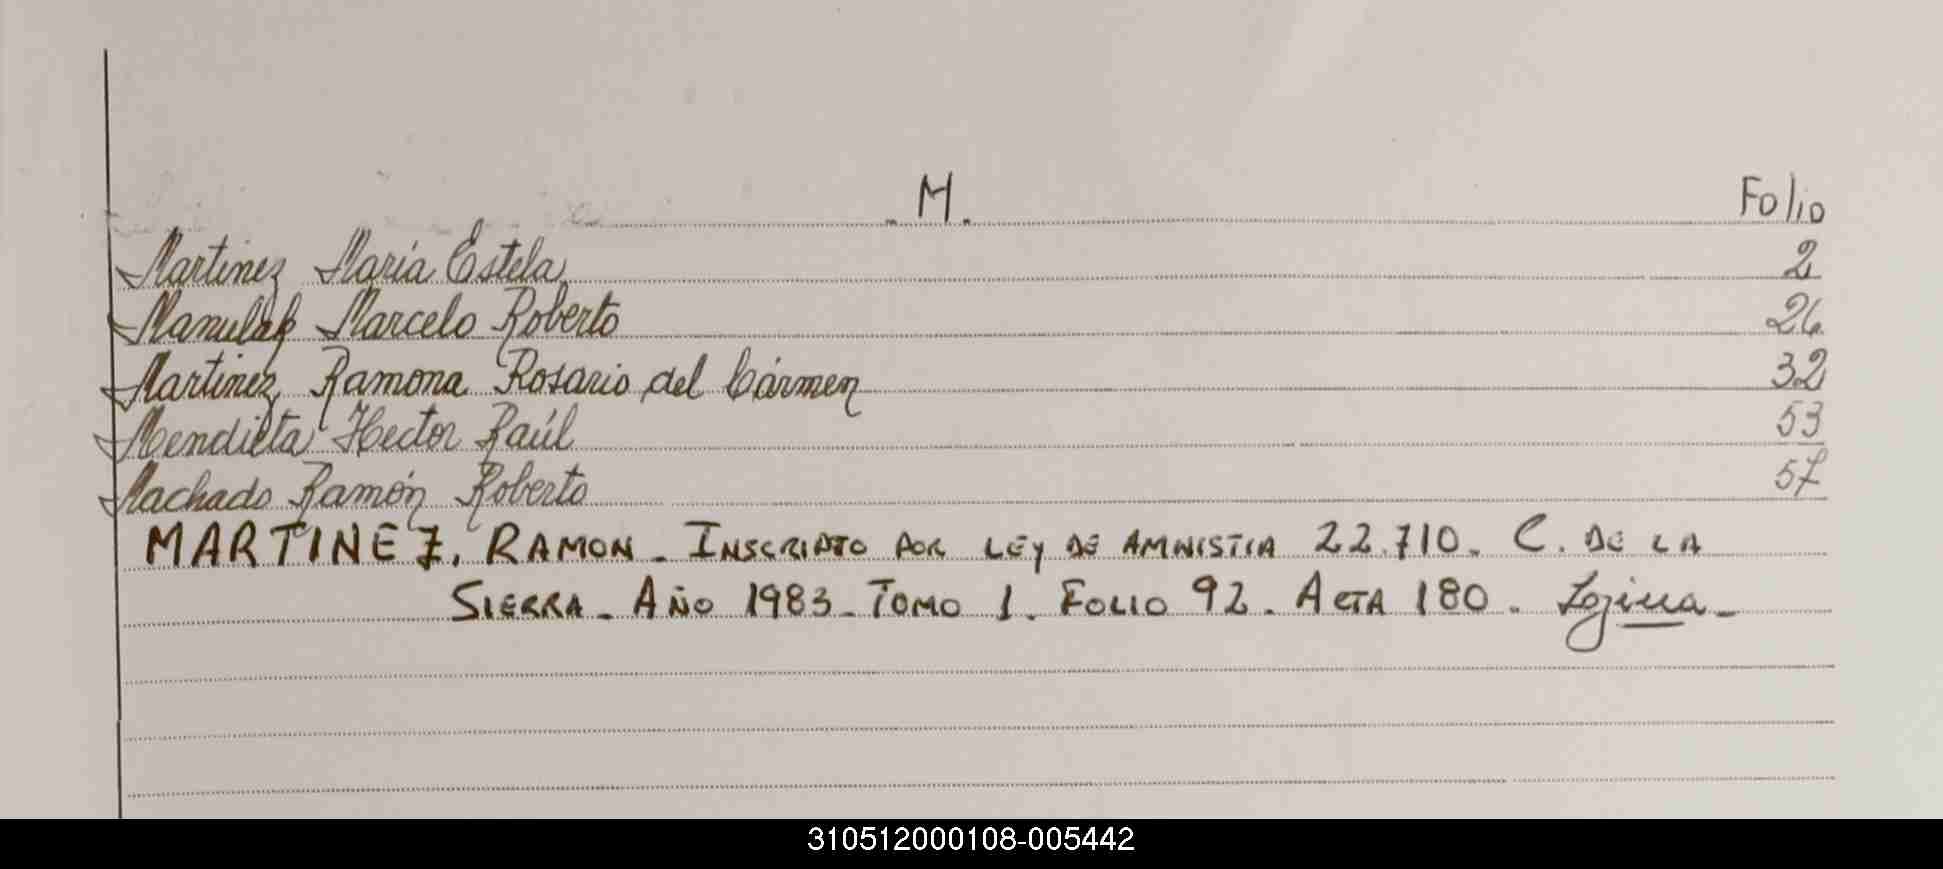 M.
Folio
Martinez Maria Estela 2
Manulak Marcelo Roberto 26
Martinez Ramona Rosario del Cármen 32
Mendieta Hector Raúl 53
Machado Ramón Roberto 57
MARTINEZ, RAMON - INSCRIPTO POR LEY DE AMNISTIA 22.710. C. DE LA
SIERRA - AÑO 1983 - TOMO 1. FOLIO 92. ACTA 180.
310512000108-005442